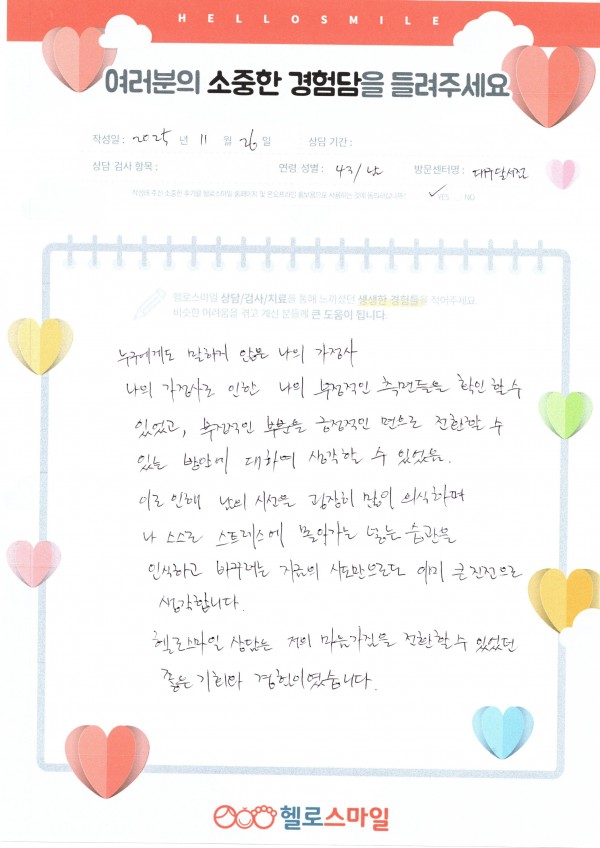 HELLOSMILE
여러분의 소중한 경험담을 들려주세요
작성일 : 2025 년 11 월 26 일 상담 기간 :
상담 검사 항목 : 연령 성별 : 43/남 방문센터명 : 대구달서점
작성해 주신 소중한 후기를 헬로스마일 홈페이지 및 온오프라인 홍보용으로 사용하는 것에 동의하십니까? ✓YES NO
헬로스마일 상담/검사/치료를 통해 느끼셨던 생생한 경험들을 적어주세요.
비슷한 어려움을 겪고 계신 분들께 큰 도움이 됩니다.
누구에게도 말하지 않은 나의 가정사
나의 가정사로 인한 나의 부정적인 측면들을 확인 할 수
있었고, 부정적인 부분을 긍정적인 면으로 전환할 수
있는 방안에 대하여 생각할 수 있었음.
이로 인해 남의 시선을 굉장히 많이 의식하며
나 스스로 스트레스에 몰아가는 습관을
인식하고 바꾸려는 지금의 시도만으로도 이미 큰 진전으로
생각합니다.
헬로스마일 상담는 저의 마음가짐을 전환할 수 있었던
좋은 기회와 경험이였습니다.
헬로스마일